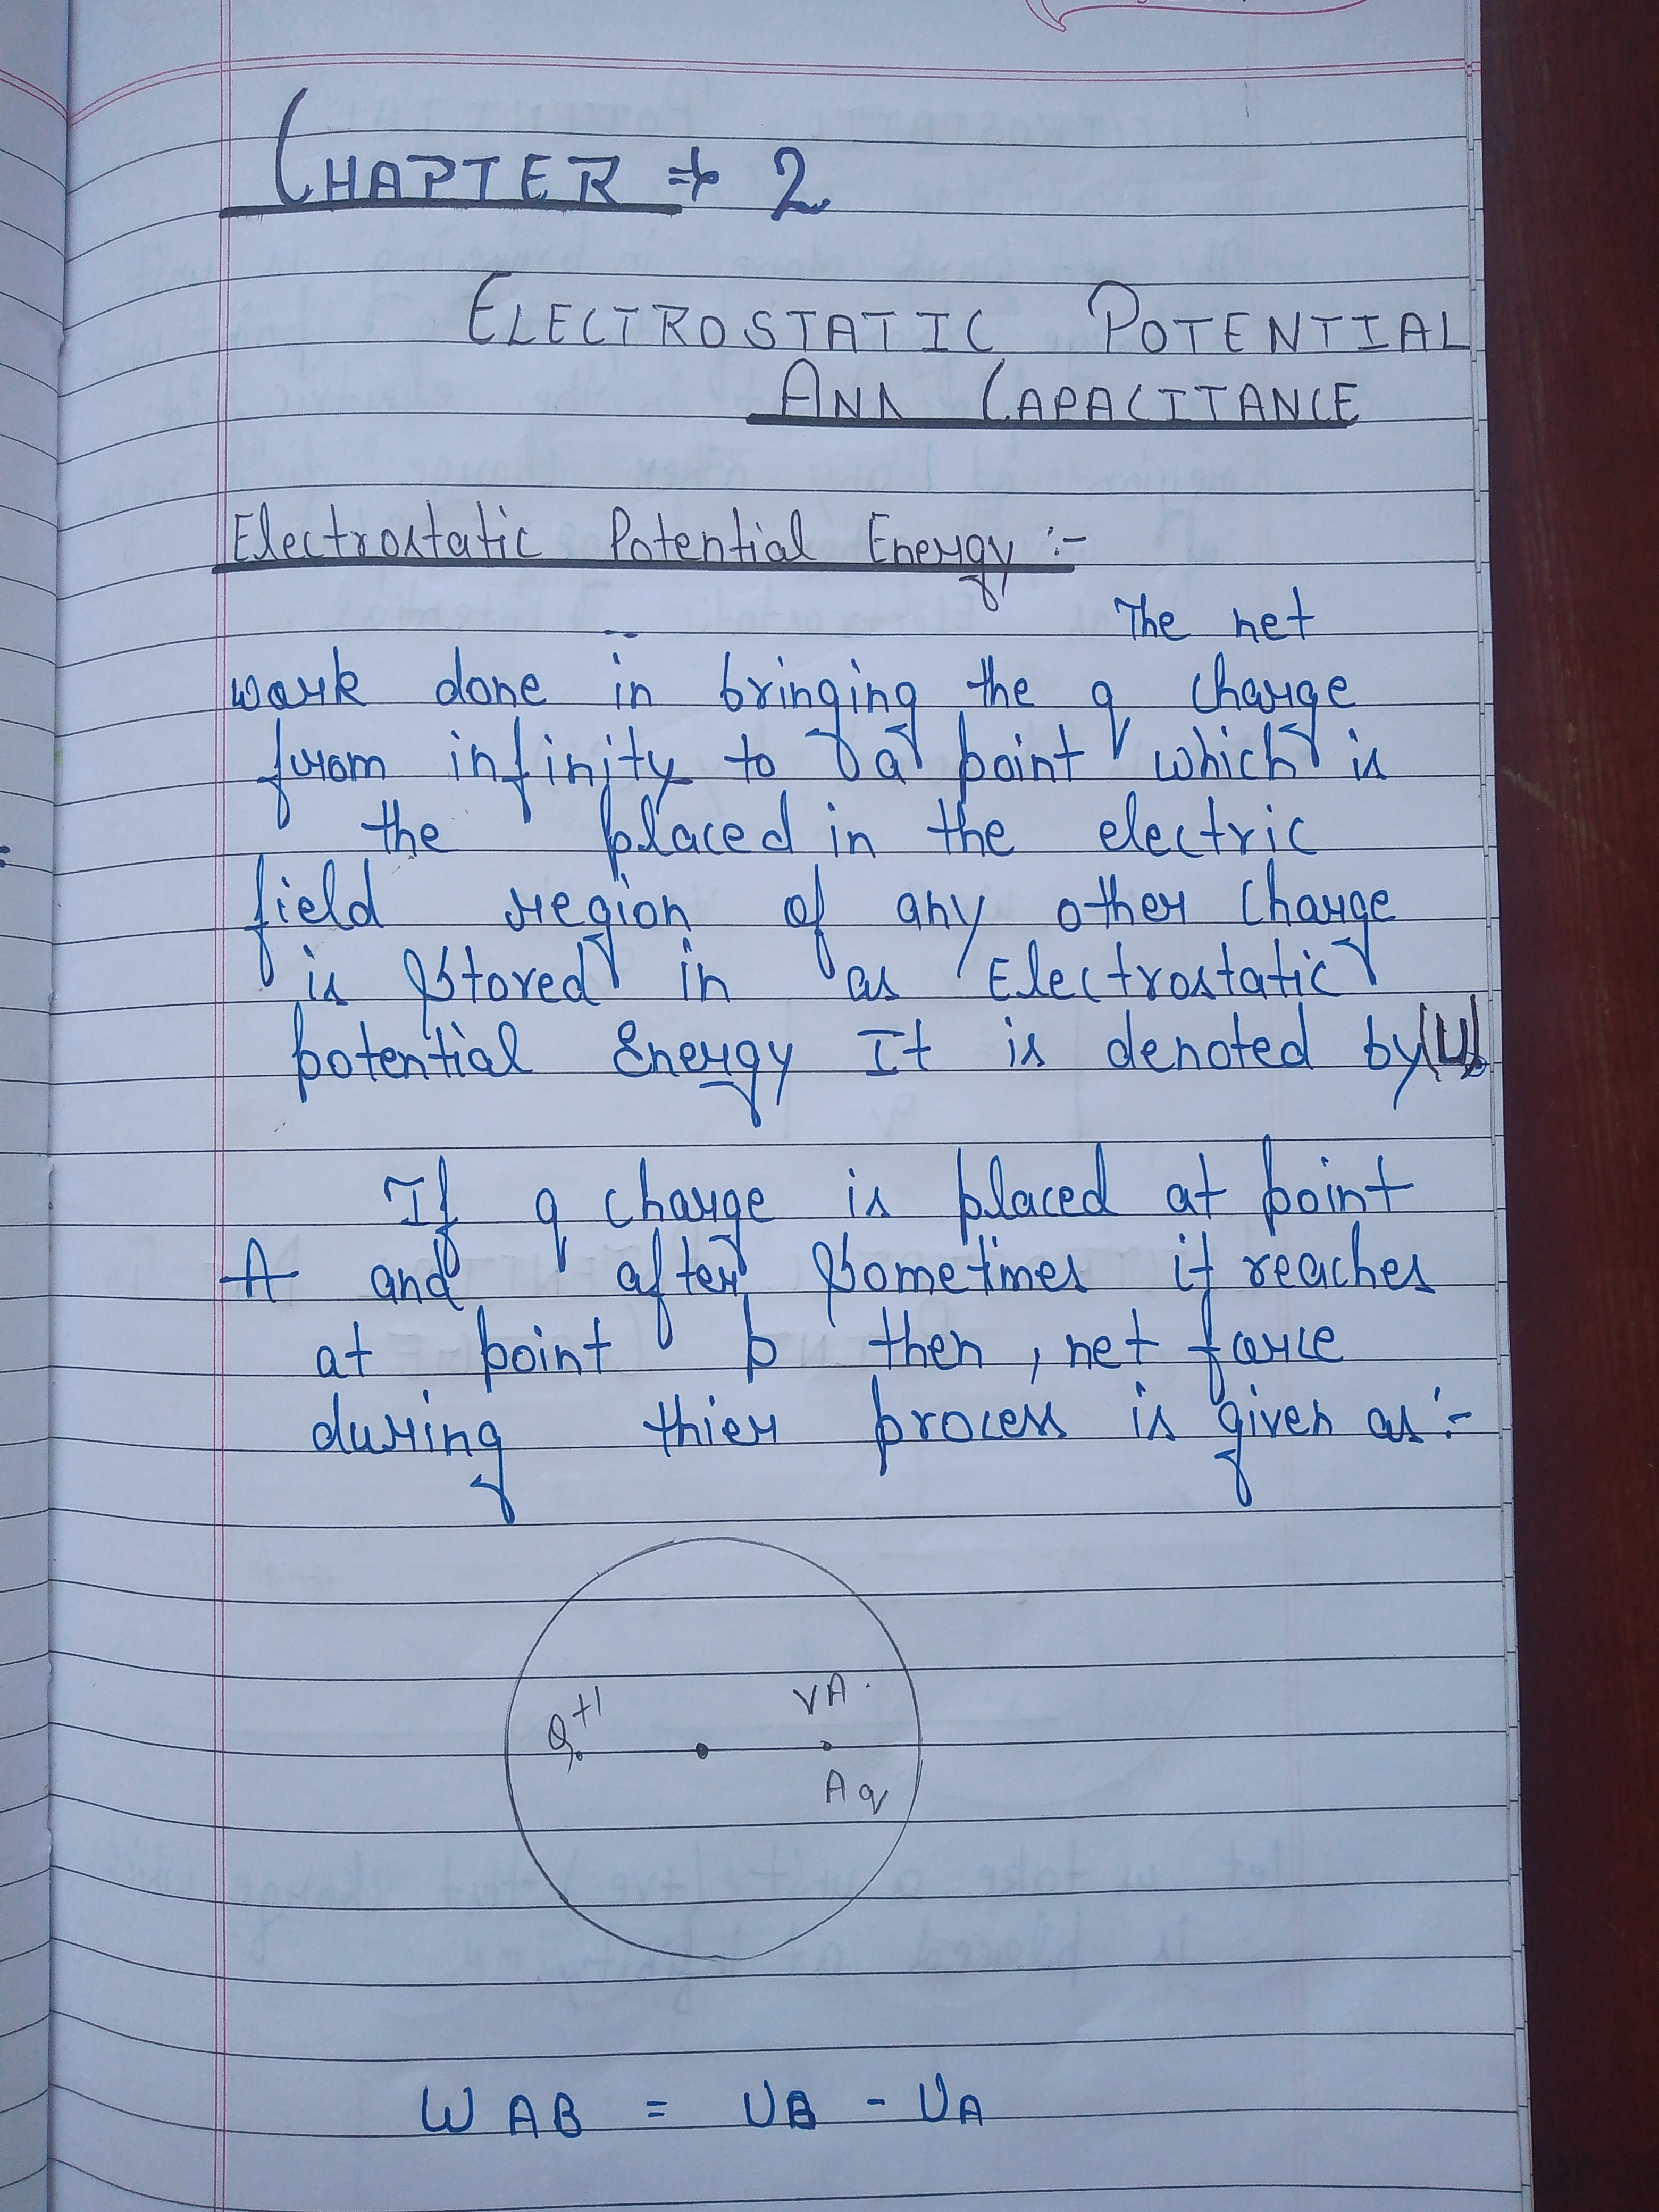 CHAPTER → 2
ELECTROSTATIC POTENTIAL
AND CAPACITANCE
Electrostatic Potential Energy :-
The net
work done in bringing the q charge
from infinity to a point which is
the placed in the electric
field region of any other charge
is stored in as Electrostatic
potential Energy It is denoted by (U).
If q charge is placed at point
A and after sometimes it reaches
at point b then, net force
during thier process is given as :-
Q+1 VA.
A q
WAB = UB - UA